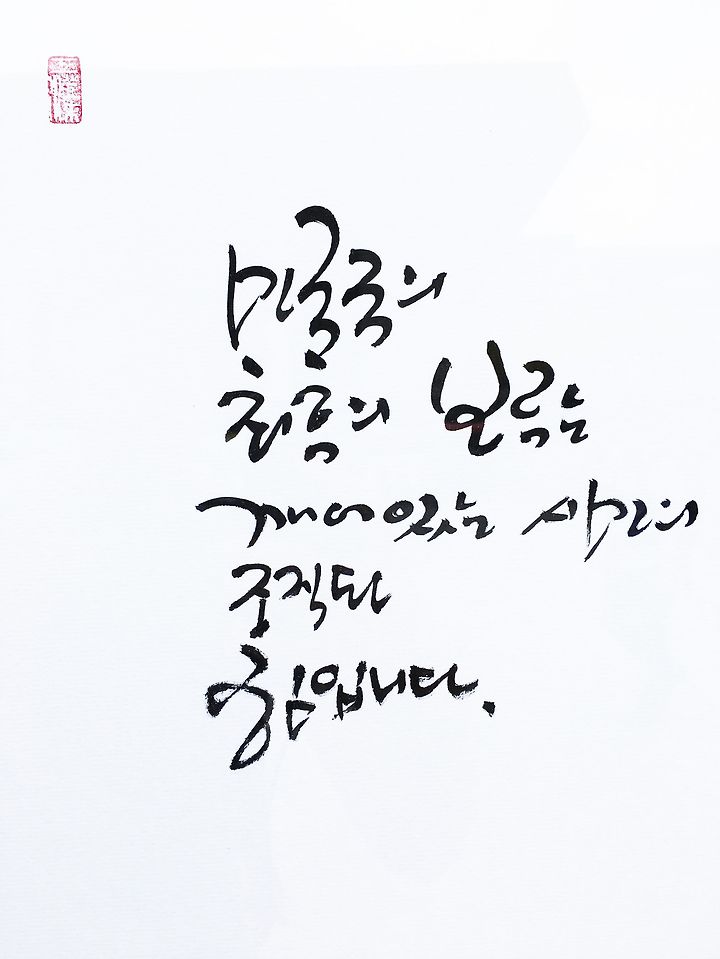 민주주의
최후의 보루는
깨어있는 시민의
조직된
힘입니다.